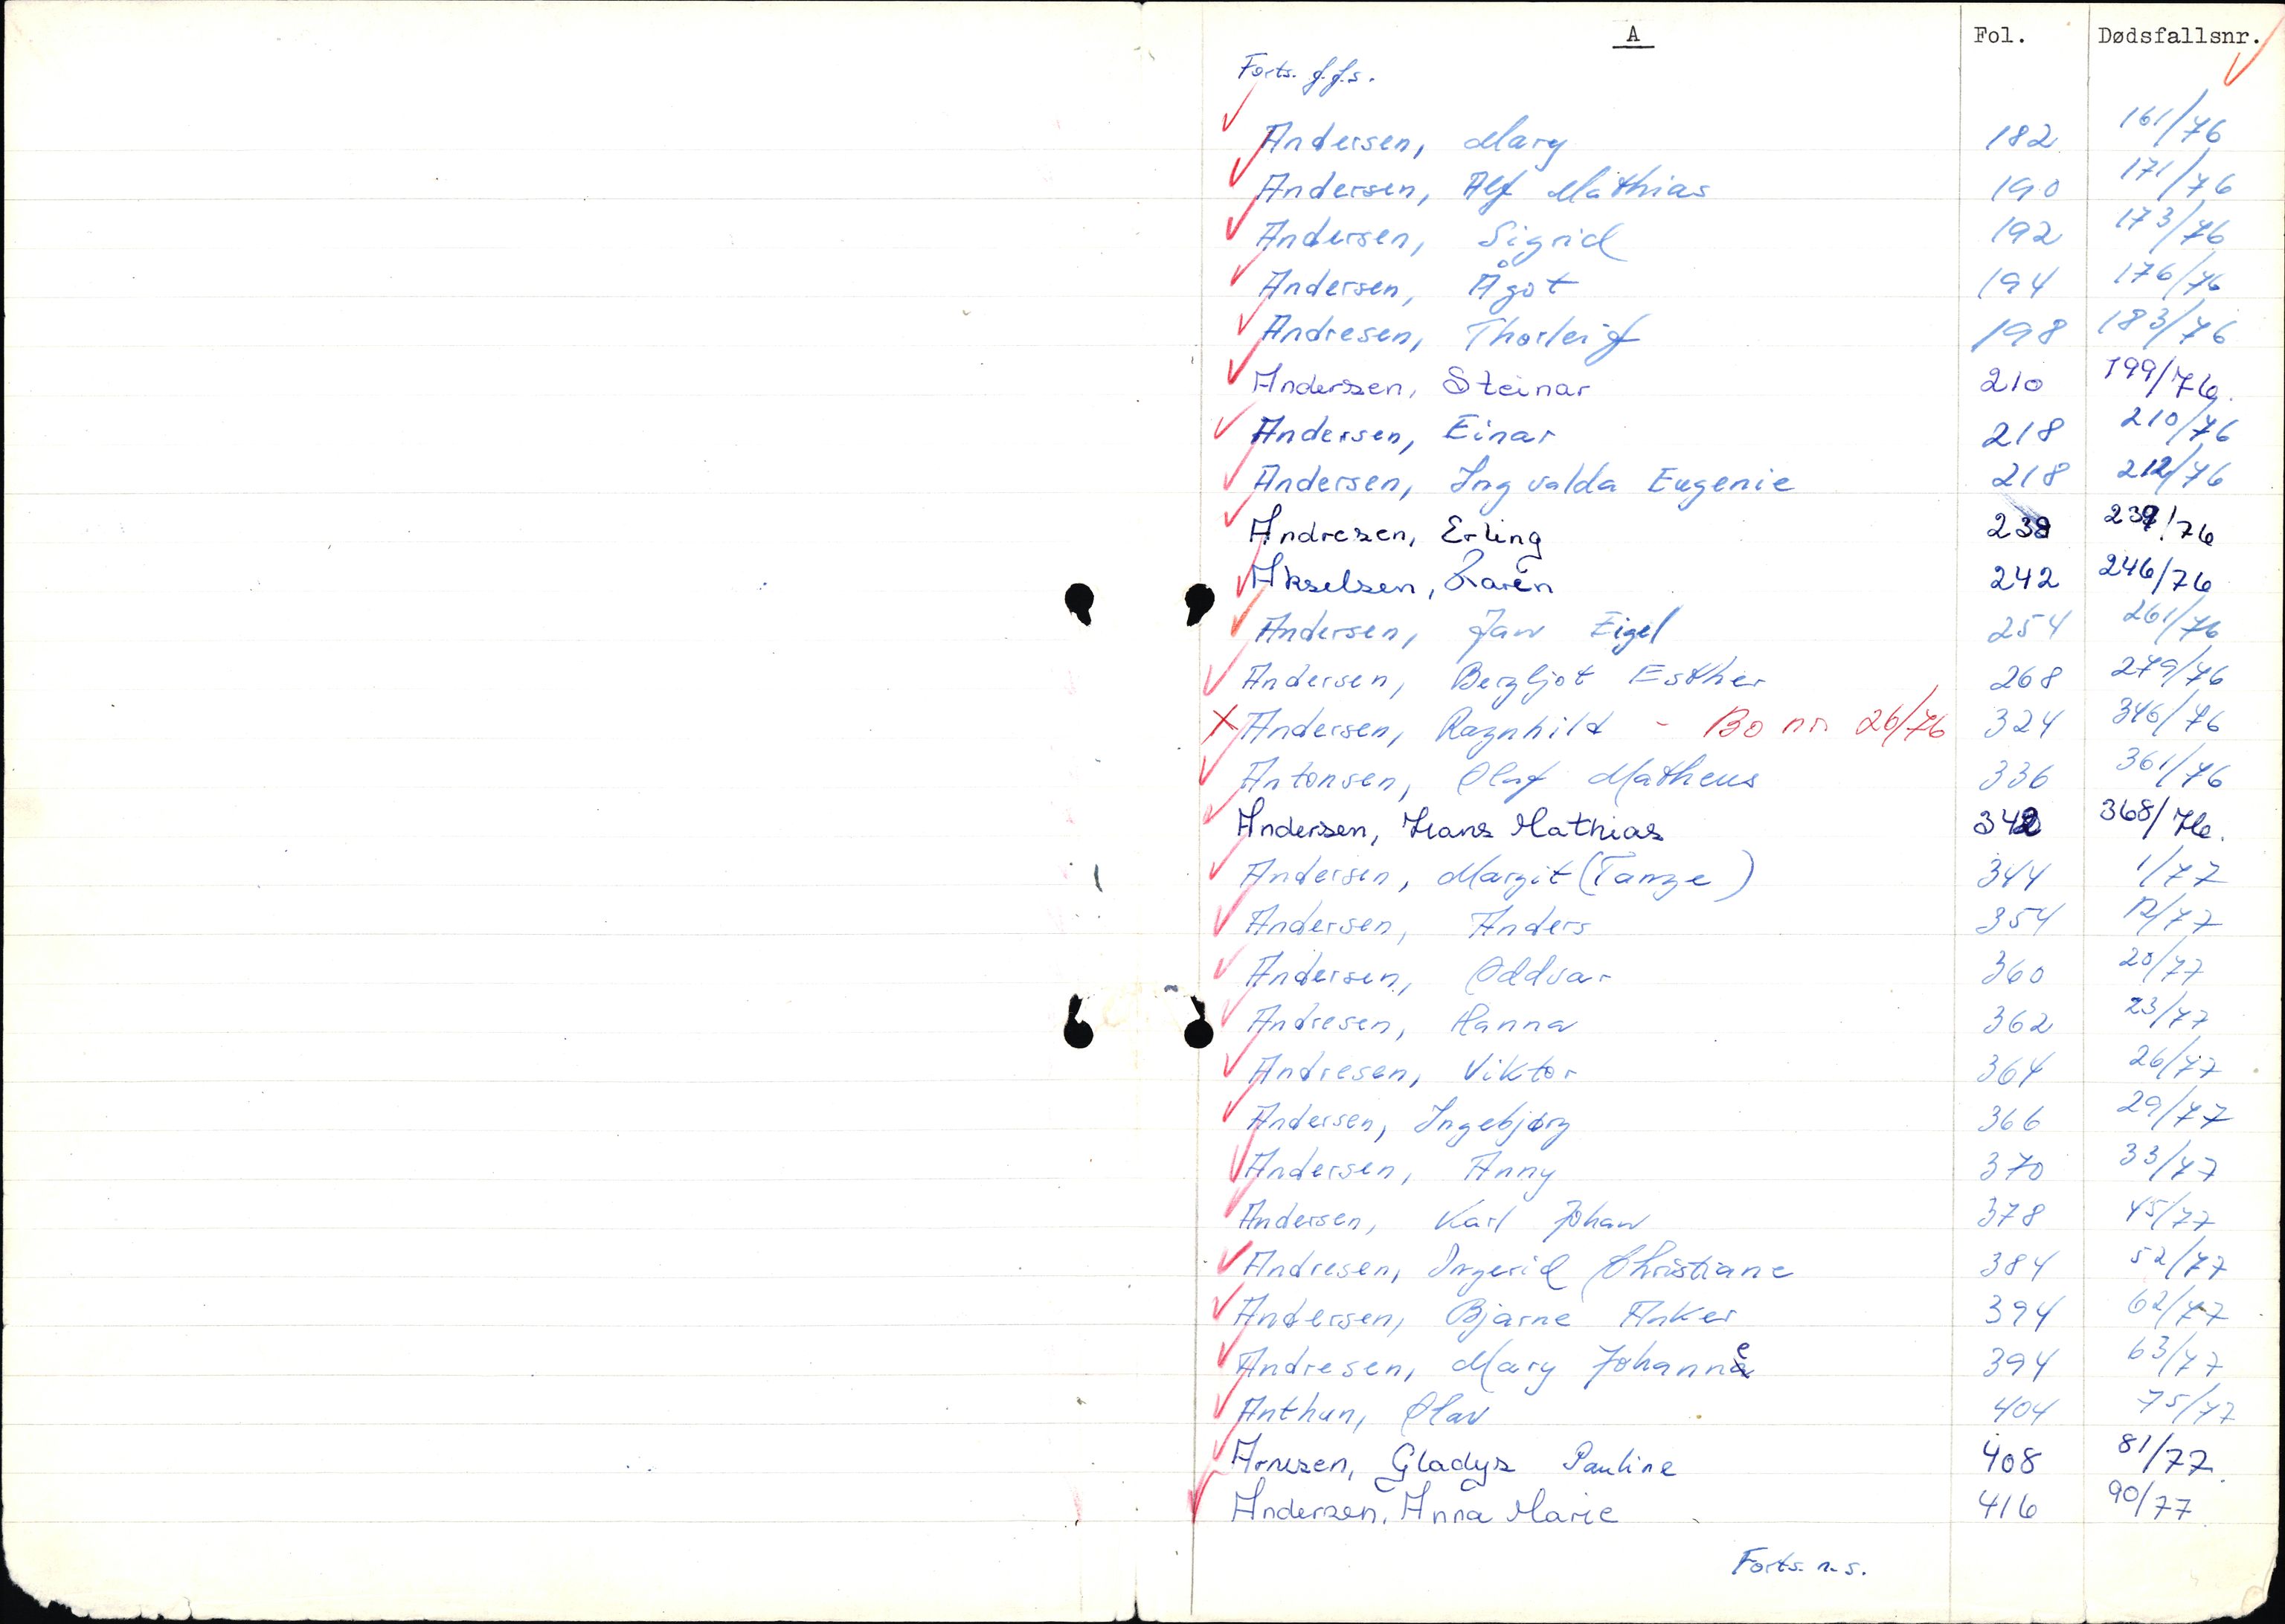 A Fol. Dødsfallsnr.
Forts. f.f.s.
Andersen, Mary 182 161/76
Andersen, Alf Mathias 190 171/76
Andersen, Sigrid 192 173/76
Andersen, Ågot 194 176/76
Andresen, Thorleif 198 183/76
Anderssen, Steinar 210 199/76.
Andersen, Einar 218 210/76
Andersen, Ingvalda Eugenie 218 212/76
Andresen, Erling 238 76
Akselsen, Karen 242 246/76
Andersen, Jan Eigel 254 261/76
Andersen, Bergljot Esther 268 279/76
Andersen, Ragnhild - Bo nr. 26/76 324 346/76
Antonsen, Olaf Matheus 336 361/76
Andersen, Hans Mathias 342 368/76.
Andersen, Margit (Tange) 344 1/77
Andersen, Anders 354 12/77
Andersen, Oddvar 360 20/77
Andresen, Hanna 362 23/77
Andresen, Viktor 364 26/77
Andersen, Ingebjørg 366 29/77
Andersen, Anny 370 33/77
Andersen, Karl Johan 378 45/77
Andresen, Ingerid Christiane 384 52/77
Andersen, Bjarne Anker 394 62/77
Andresen, Mary Johanne 394 63/77
Anthun, Olav 404 75/77
Arnesen, Gladys Pauline 408 81/77.
Andersen, Anna Marie 416 90/77
Forts. n.s.